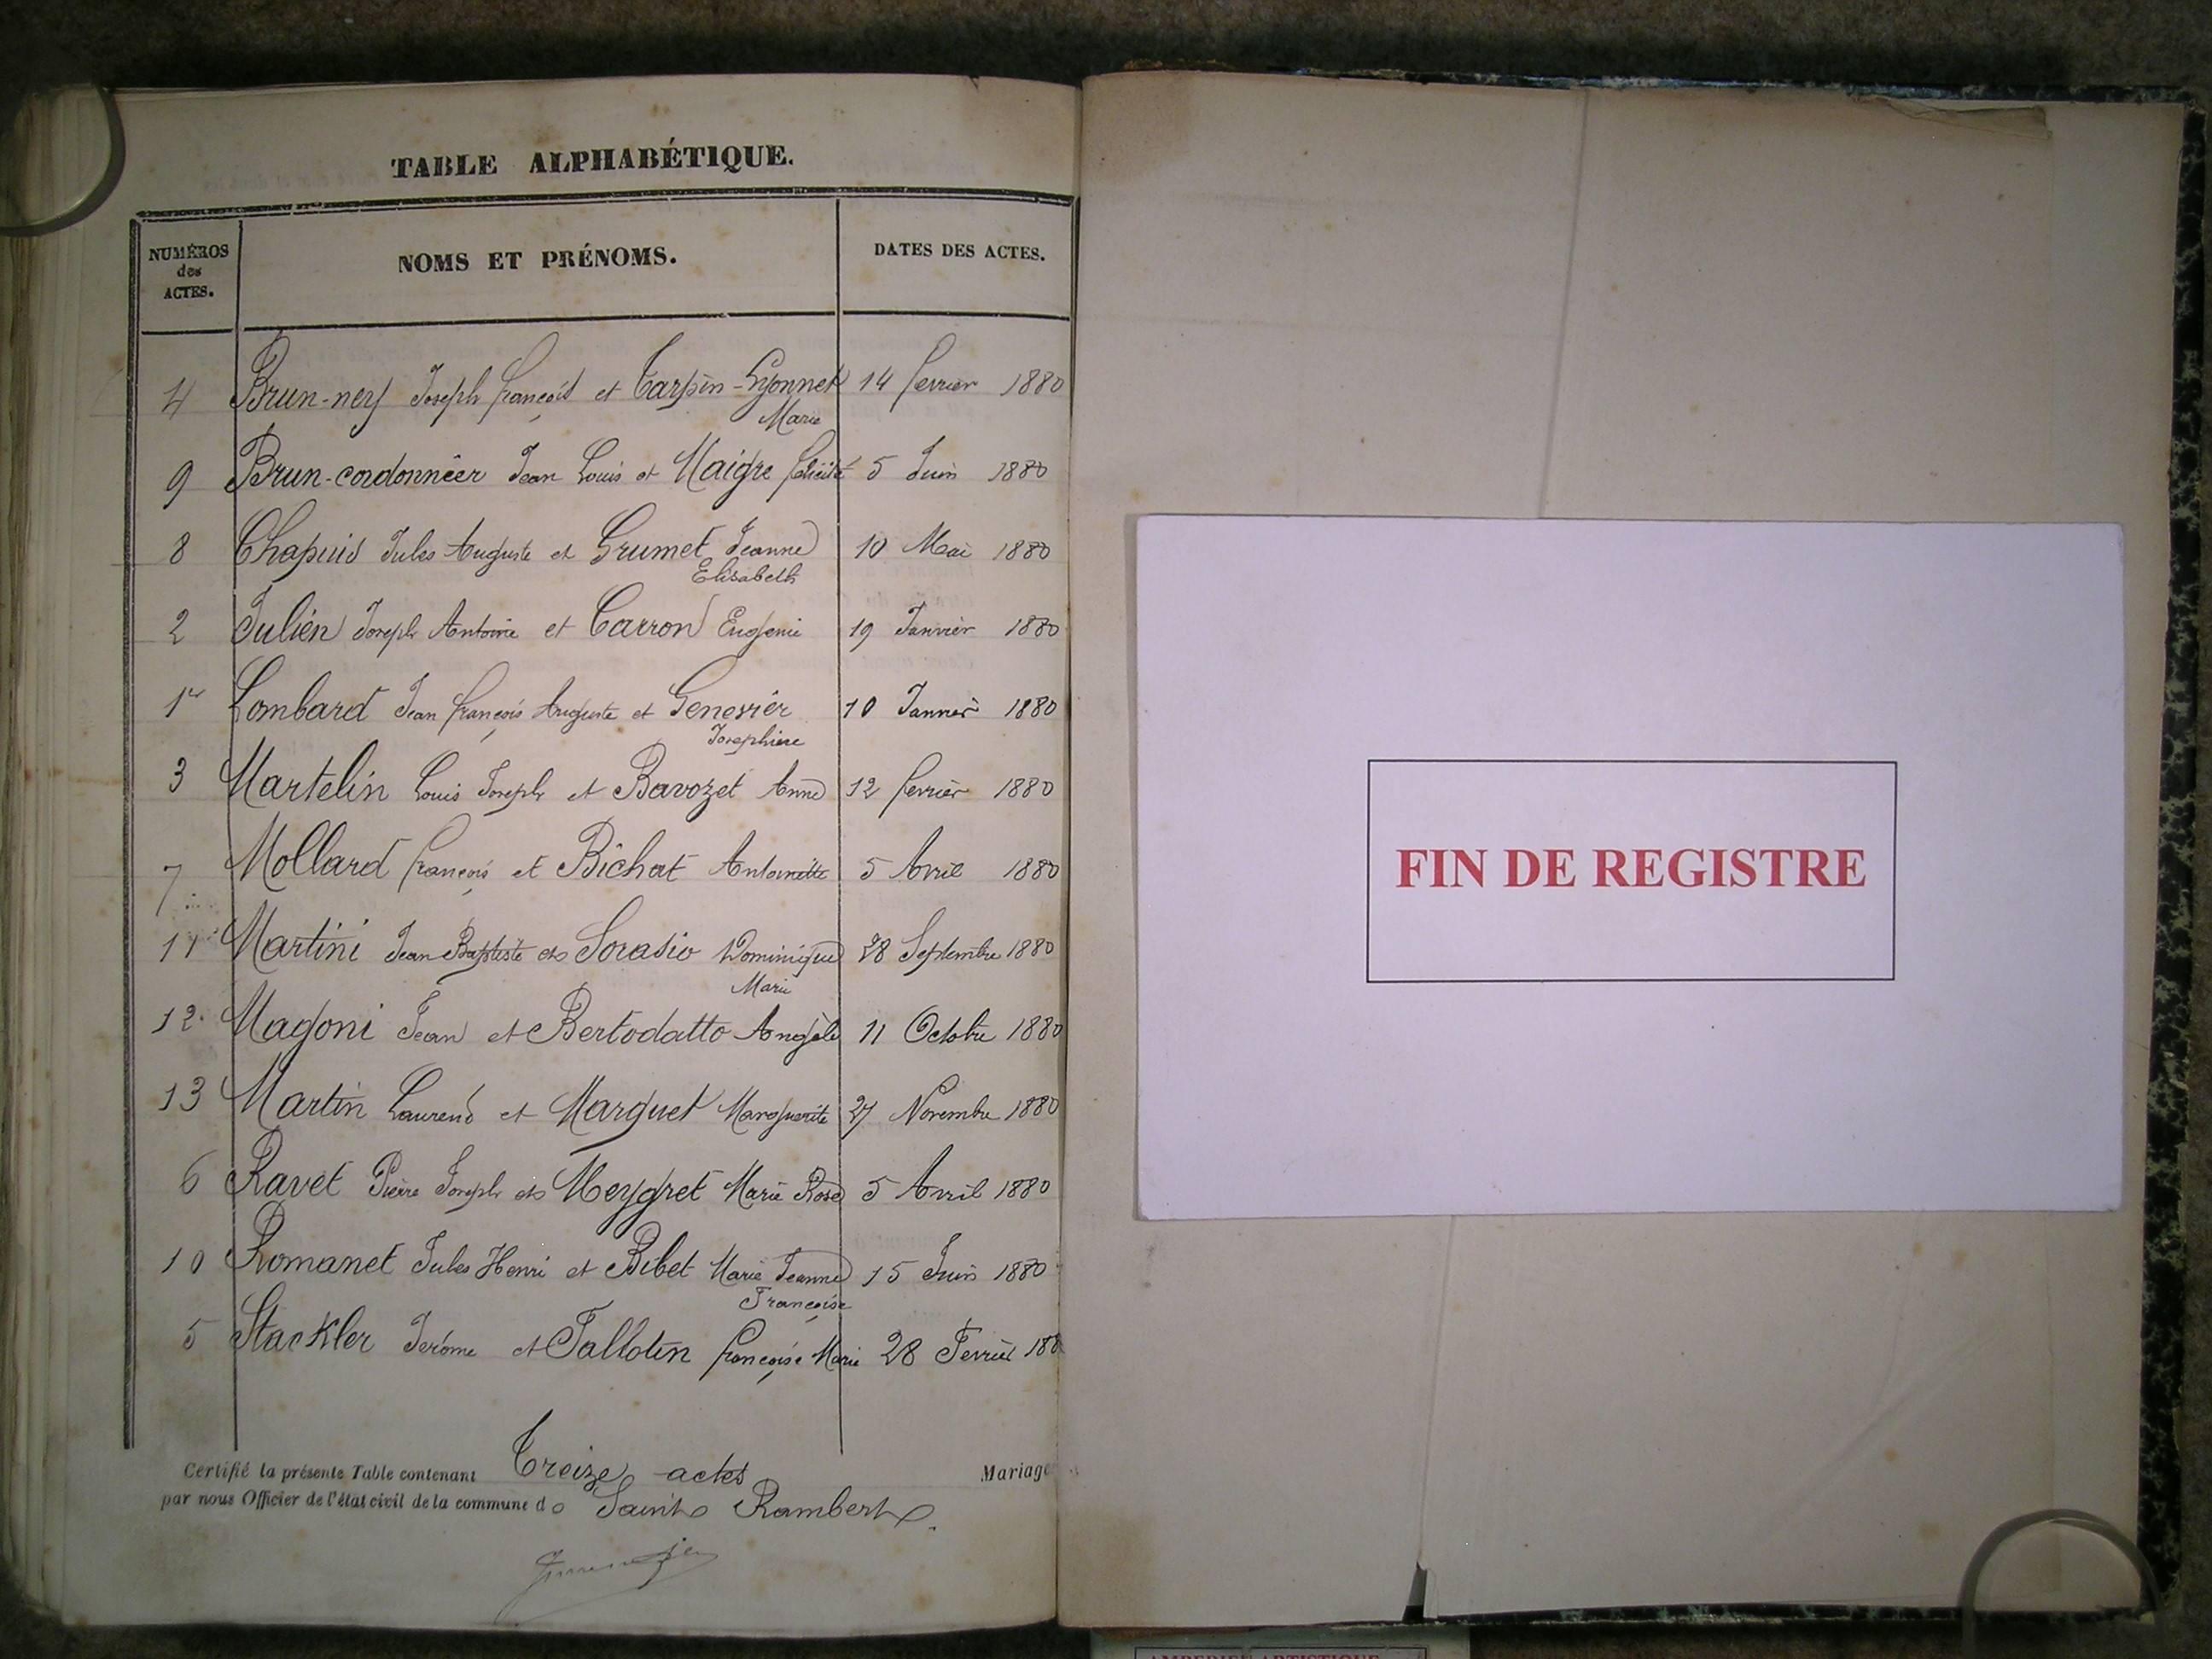 TABLE ALPHABÉTIQUE.
NUMÉROS
des
ACTES.
NOMS ET PRÉNOMS.
DATES DES ACTES.
4 Brun-ney Joseph françois et Tarpin-Gyonnet 14 fevrier 1880
Marie
9 Brun-cordonnier Jean Louis et Maigre félicité 5 Juin 1880
8 Chapuis Jules Auguste et Grumet Jeanne 10 Mai 1880
Elisabeth
2 Julien Joseph Antoine et Carron Eugenie 19 Janvier 1880
1er Lombard Jean françois Auguste et Genevrier 10 Janvier 1880
Josephine
3 Martelin Louis Joseph et Bavozet Anne 12 fevrier 1880
7 Mollard françois et Bichat Antoinette 5 Avril 1880
11 Martini Jean Baptiste et Sorasio Dominique 28 Septembre 1880
Marie
12 Magoni Jean et Bertodatto Angèle 11 Octobre 1880
13 Martin Laurend et Marguet Marguerite 27 Novembre 1880
6 Ravet Pierre Joseph et Meygret Marie Rose 5 Avril 1880
10 Romanet Jules Henri et Bibet Marie Jeanne 15 Juin 1880
Françoise
5 Stackler Jerôme et Tallotin françoise Marie 28 Fevrier 188
Certifié la présente Table contenant Treize actes Mariage
par nous Officier de l'état civil de la commune de Saint Rambert.
FIN DE REGISTRE